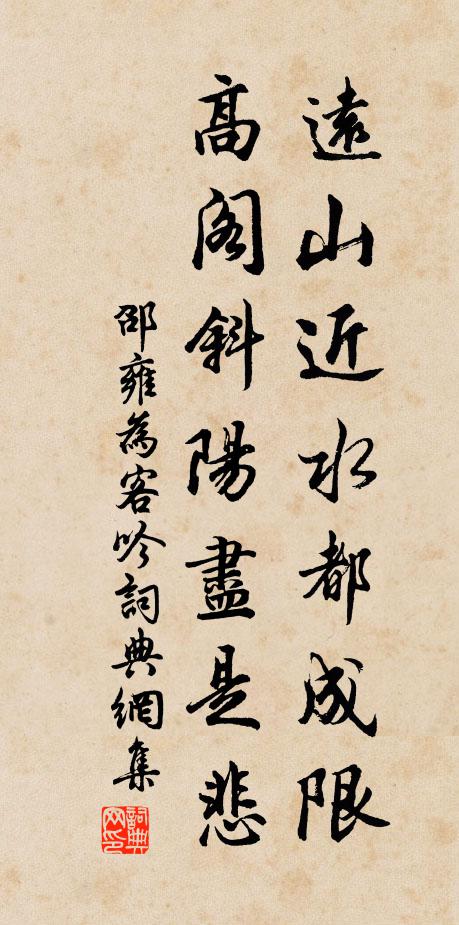 遠山近水都成限
高阁斜陽盡是悲
邵雍為客吟詞典網集
詞典网印